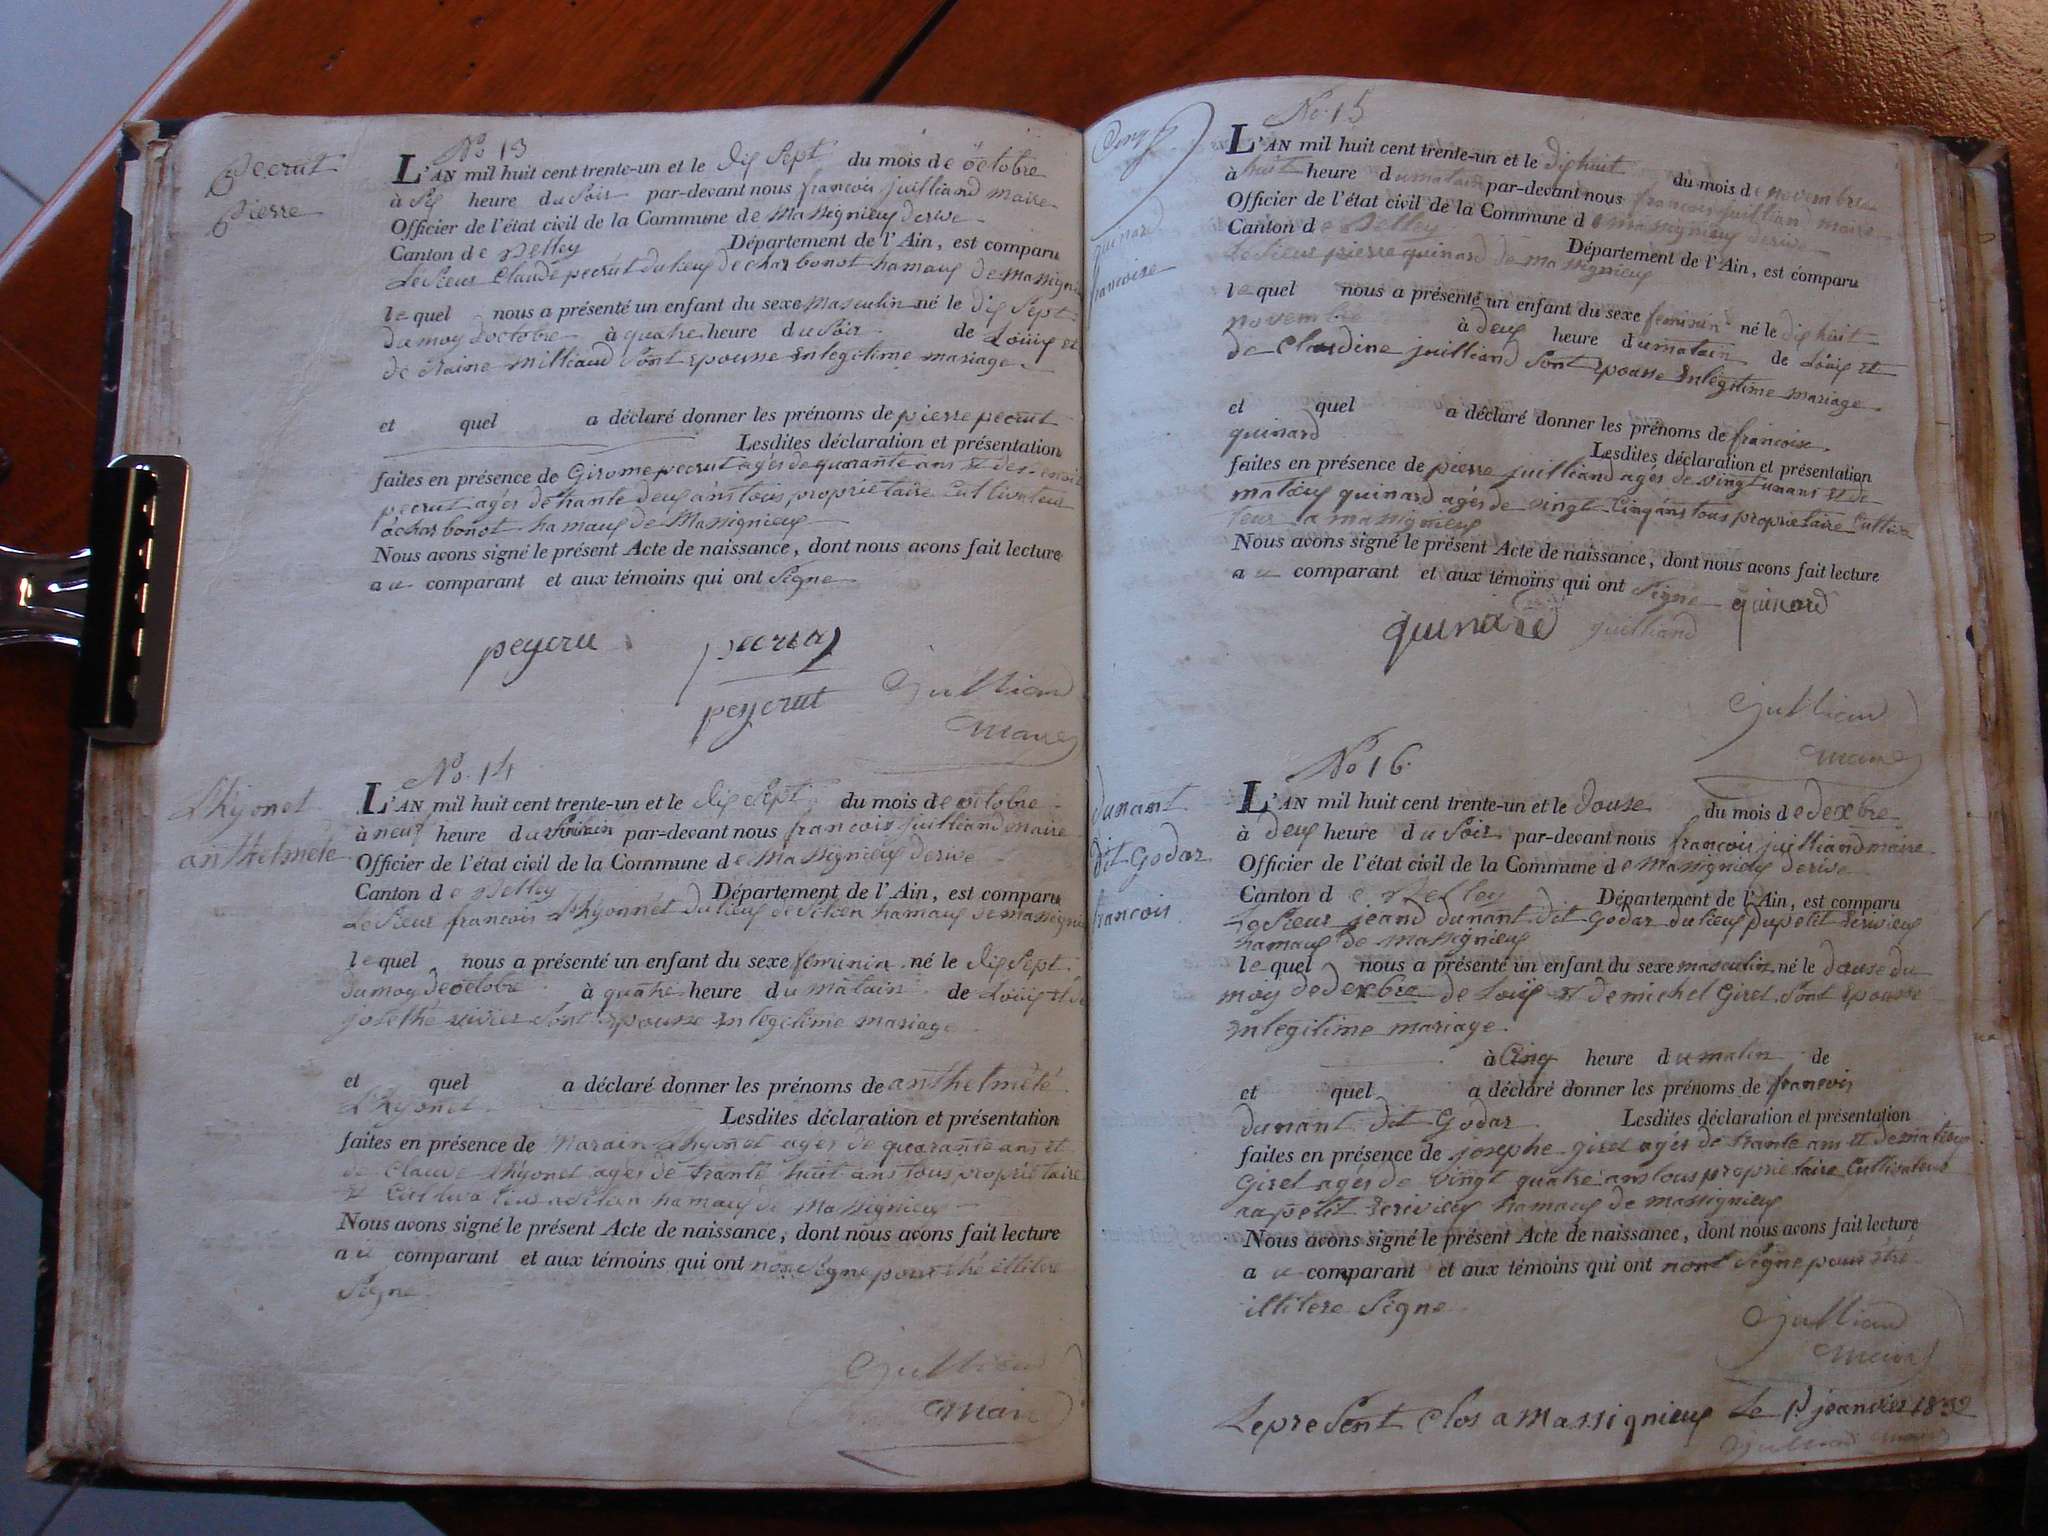 No 13
pecrut
pierre
L'AN mil huit cent trente-un et le dix sept du mois de octobre
à six heure du soir par-devant nous francois juilliand maire
Officier de l'état civil de la Commune de Massignieux derive
Canton de Belley Département de l'Ain, est comparu
Le sieur Claude pecrut du lieux de charbonot hamaux de Massigni
lequel nous a présenté un enfant du sexe masculin né le dix sept
du moy doctobre à quatre heure du soir de Louis et
de milliand sont Epousse En legitime mariage
et quel a déclaré donner les prénoms de pierre pecrut
Lesdites déclaration et présentation
faites en présence de Girome pecrut agés de quarante ans et de
pecrut agés de trante deux ans tous proprietaire Cultivateur
a charbonot hamaux de Massignieux
Nous avons signé le présent Acte de naissance, dont nous avons fait lecture
au comparant et aux témoins qui ont Signe
peycru
peycrut
Juilliand
maire
No. 14
Lhyonet
anthelmete
L'AN mil huit cent trente-un et le dix sept du mois de octobre
à neuf heure du par-devant nous francois juilliand maire
Officier de l'état civil de la Commune de Massignieux derive
Canton de Belley Département de l'Ain, est comparu
Le sieur francois Lhyonnet du lieux de hamaux de massigni
lequel nous a présenté un enfant du sexe feminin né le dix sept
du moy de octobre à quatre heure du matain de Louis et de
josephe sont Epousse En legitime mariage
et quel a déclaré donner les prénoms de anthelmété
Lhyonet
Lesdites déclaration et présentation
faites en présence de Lhyonet agés de quarante ans et
de Claude Lhyonet agés de trante huit ans tous proprietaire
et Cultivateur a hamaux de Massignieux
Nous avons signé le présent Acte de naissance, dont nous avons fait lecture
au comparant et aux témoins qui ont non Signe pour étré illitere
Signe
Juilliand
maire
No. 15
quinard
francoise
L'AN mil huit cent trente-un et le dix huit du mois de novembre
à huit heure du matain par-devant nous francois juilliand maire
Officier de l'état civil de la Commune de massignieux derive
Canton de Belley Département de l'Ain, est comparu
Le sieur pierre quinard de massignieux
lequel nous a présenté un enfant du sexe feminin né le dix huit
novembre à deux heure du matain de Louis et
de Claudine juilliand sont Epousse En legitime mariage
et quel a déclaré donner les prénoms de francoise
quinard Lesdites déclaration et présentation
faites en présence de pierre juilliand agés de vingt unans et de
quinard agés de vingt Cinq ans tous proprietaire Cultiva
teur a massignieux
Nous avons signé le présent Acte de naissance, dont nous avons fait lecture
au comparant et aux témoins qui ont Signe quinard
quinard juilliand
Juilliand
maire
No 16
dunant
dit Godar
francois
L'AN mil huit cent trente-un et le douse du mois de dexbre
à deux heure du soir par-devant nous francois juilliand maire
Officier de l'état civil de la Commune de Massignieux derive
Canton de Belley Département de l'Ain, est comparu
Le sieur jeand dunant dit Godar du lieux du petit
hamaux de Massignieux
lequel nous a présenté un enfant du sexe masculin né le douse du
moy de dexbre de Louis et de michel Giret sont Epousse
En legitime mariage.
à Cinq heure du matin de
et quel a déclaré donner les prénoms de francois
dunant dit Godar Lesdites déclaration et présentation
faites en présence de josephe giret agés de trante ans et de
Giret agés de vingt quatre ans tous proprietaire Cultivateur
au petit hamaux de massignieux
Nous avons signé le présent Acte de naissance, dont nous avons fait lecture
au comparant et aux témoins qui ont nont Signe pour étré
illitere Signe
Juilliand
maire
Le present Clos a Massignieux Le 1 janvier 1832
Juilliand maire